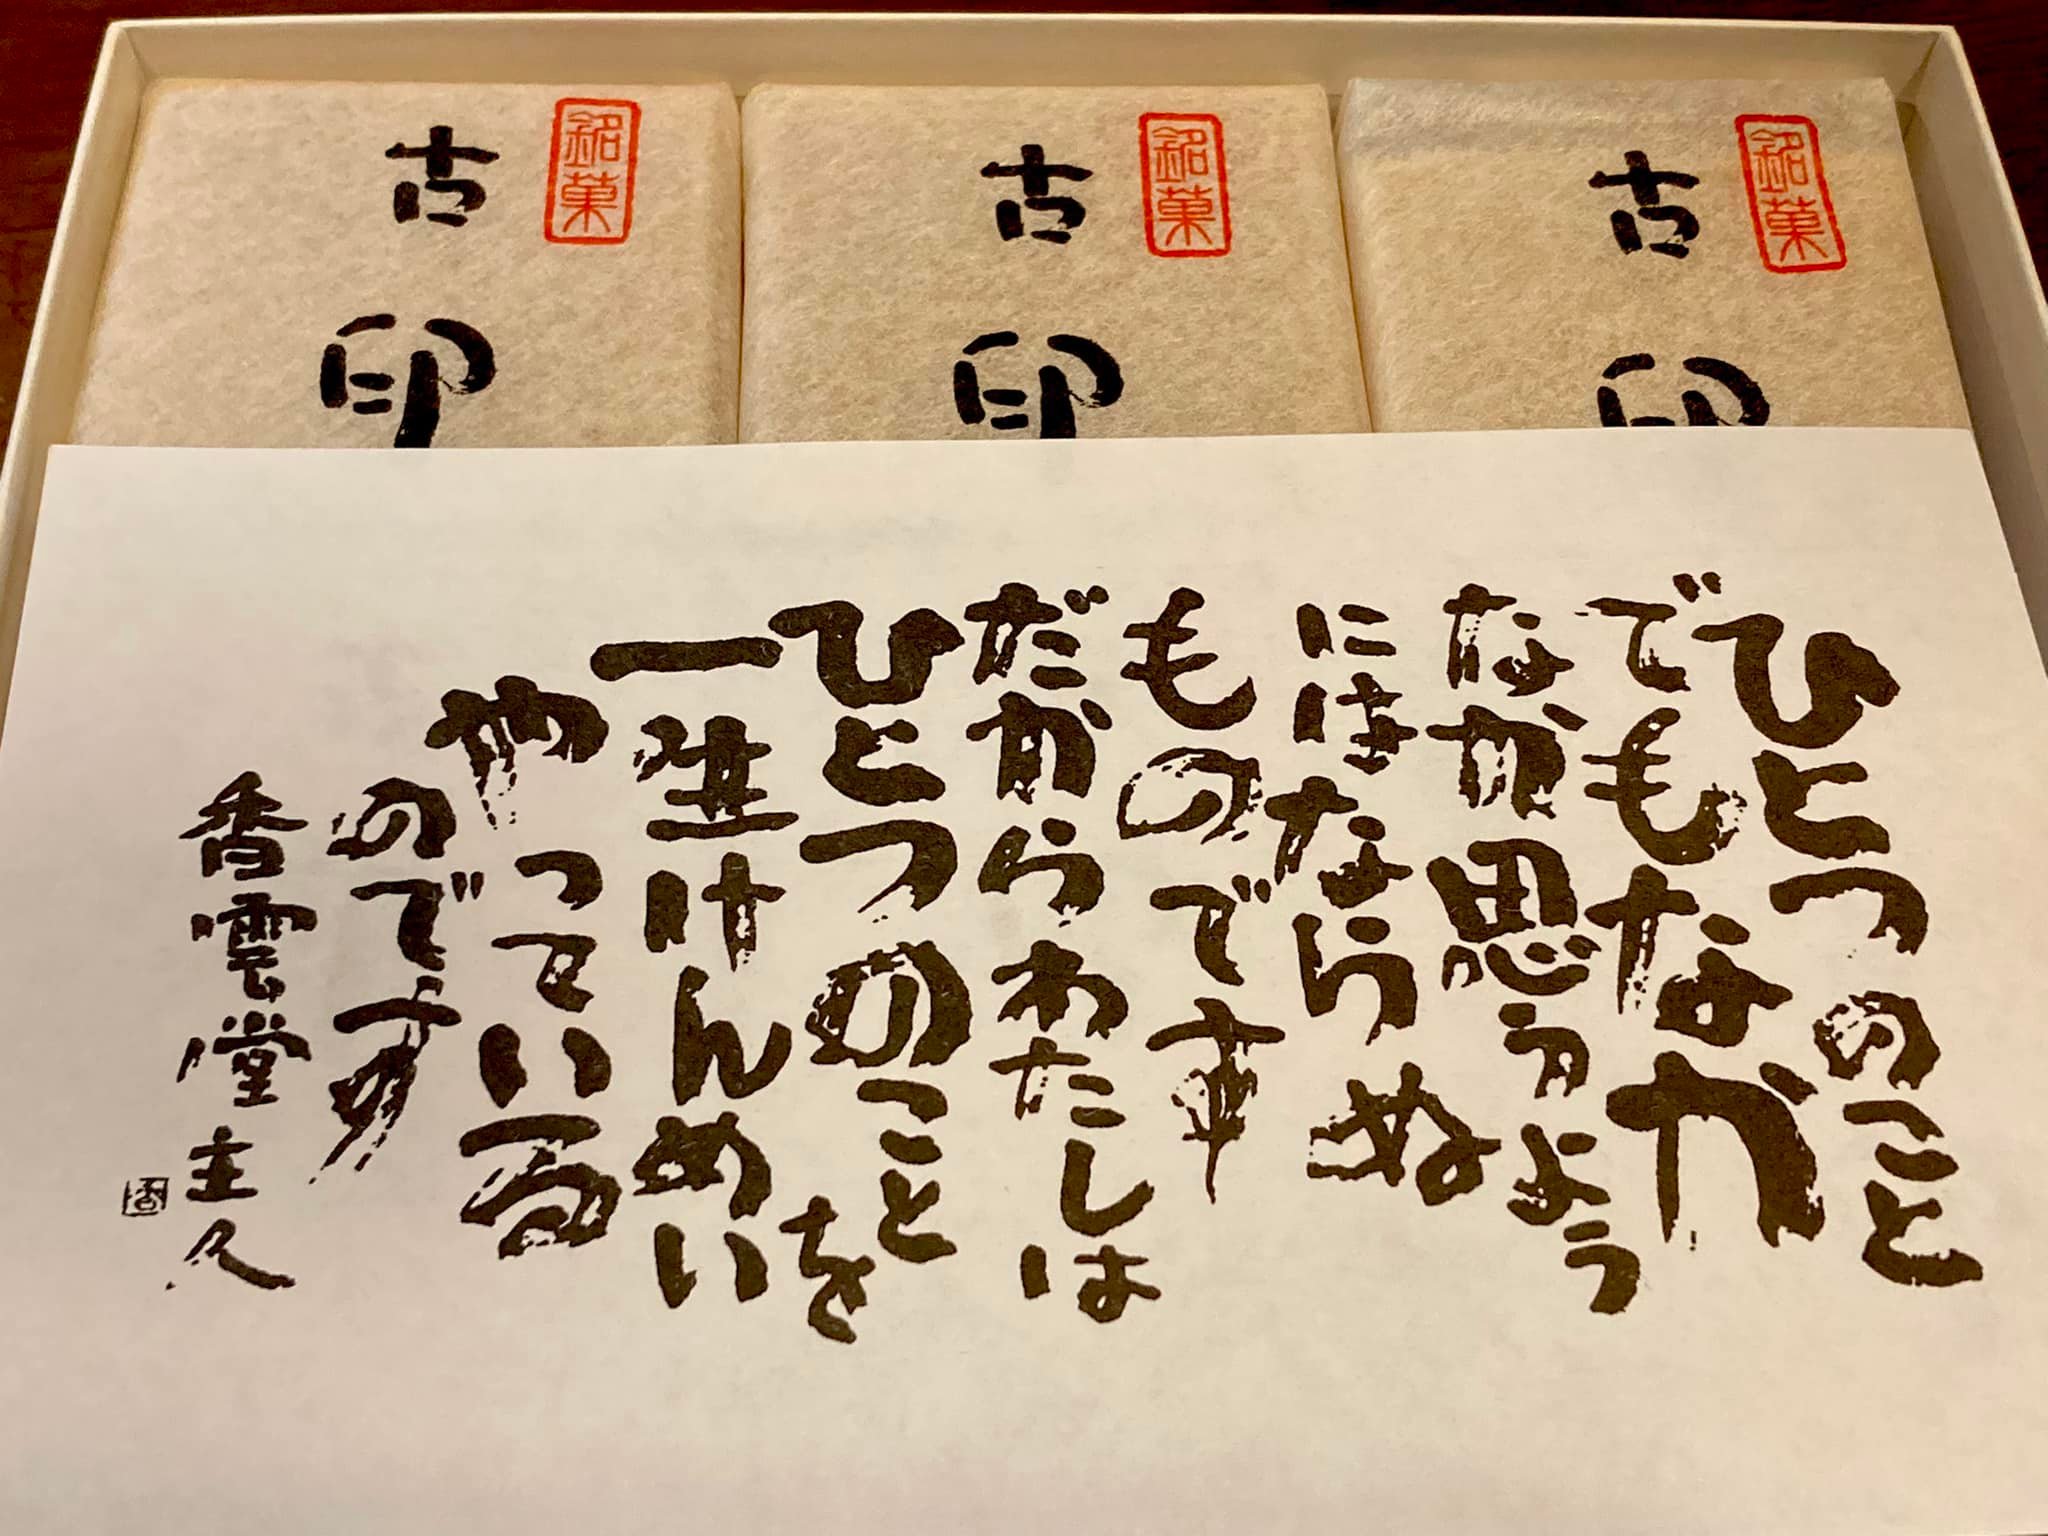 銘菓
古印
銘菓
古印
銘菓
古印
ひとつのこと
でもなか
なか思うよう
にはならぬ
ものです
だからわたしは
ひとつのことを
一生けんめい
やっている
のです
香雲堂主人